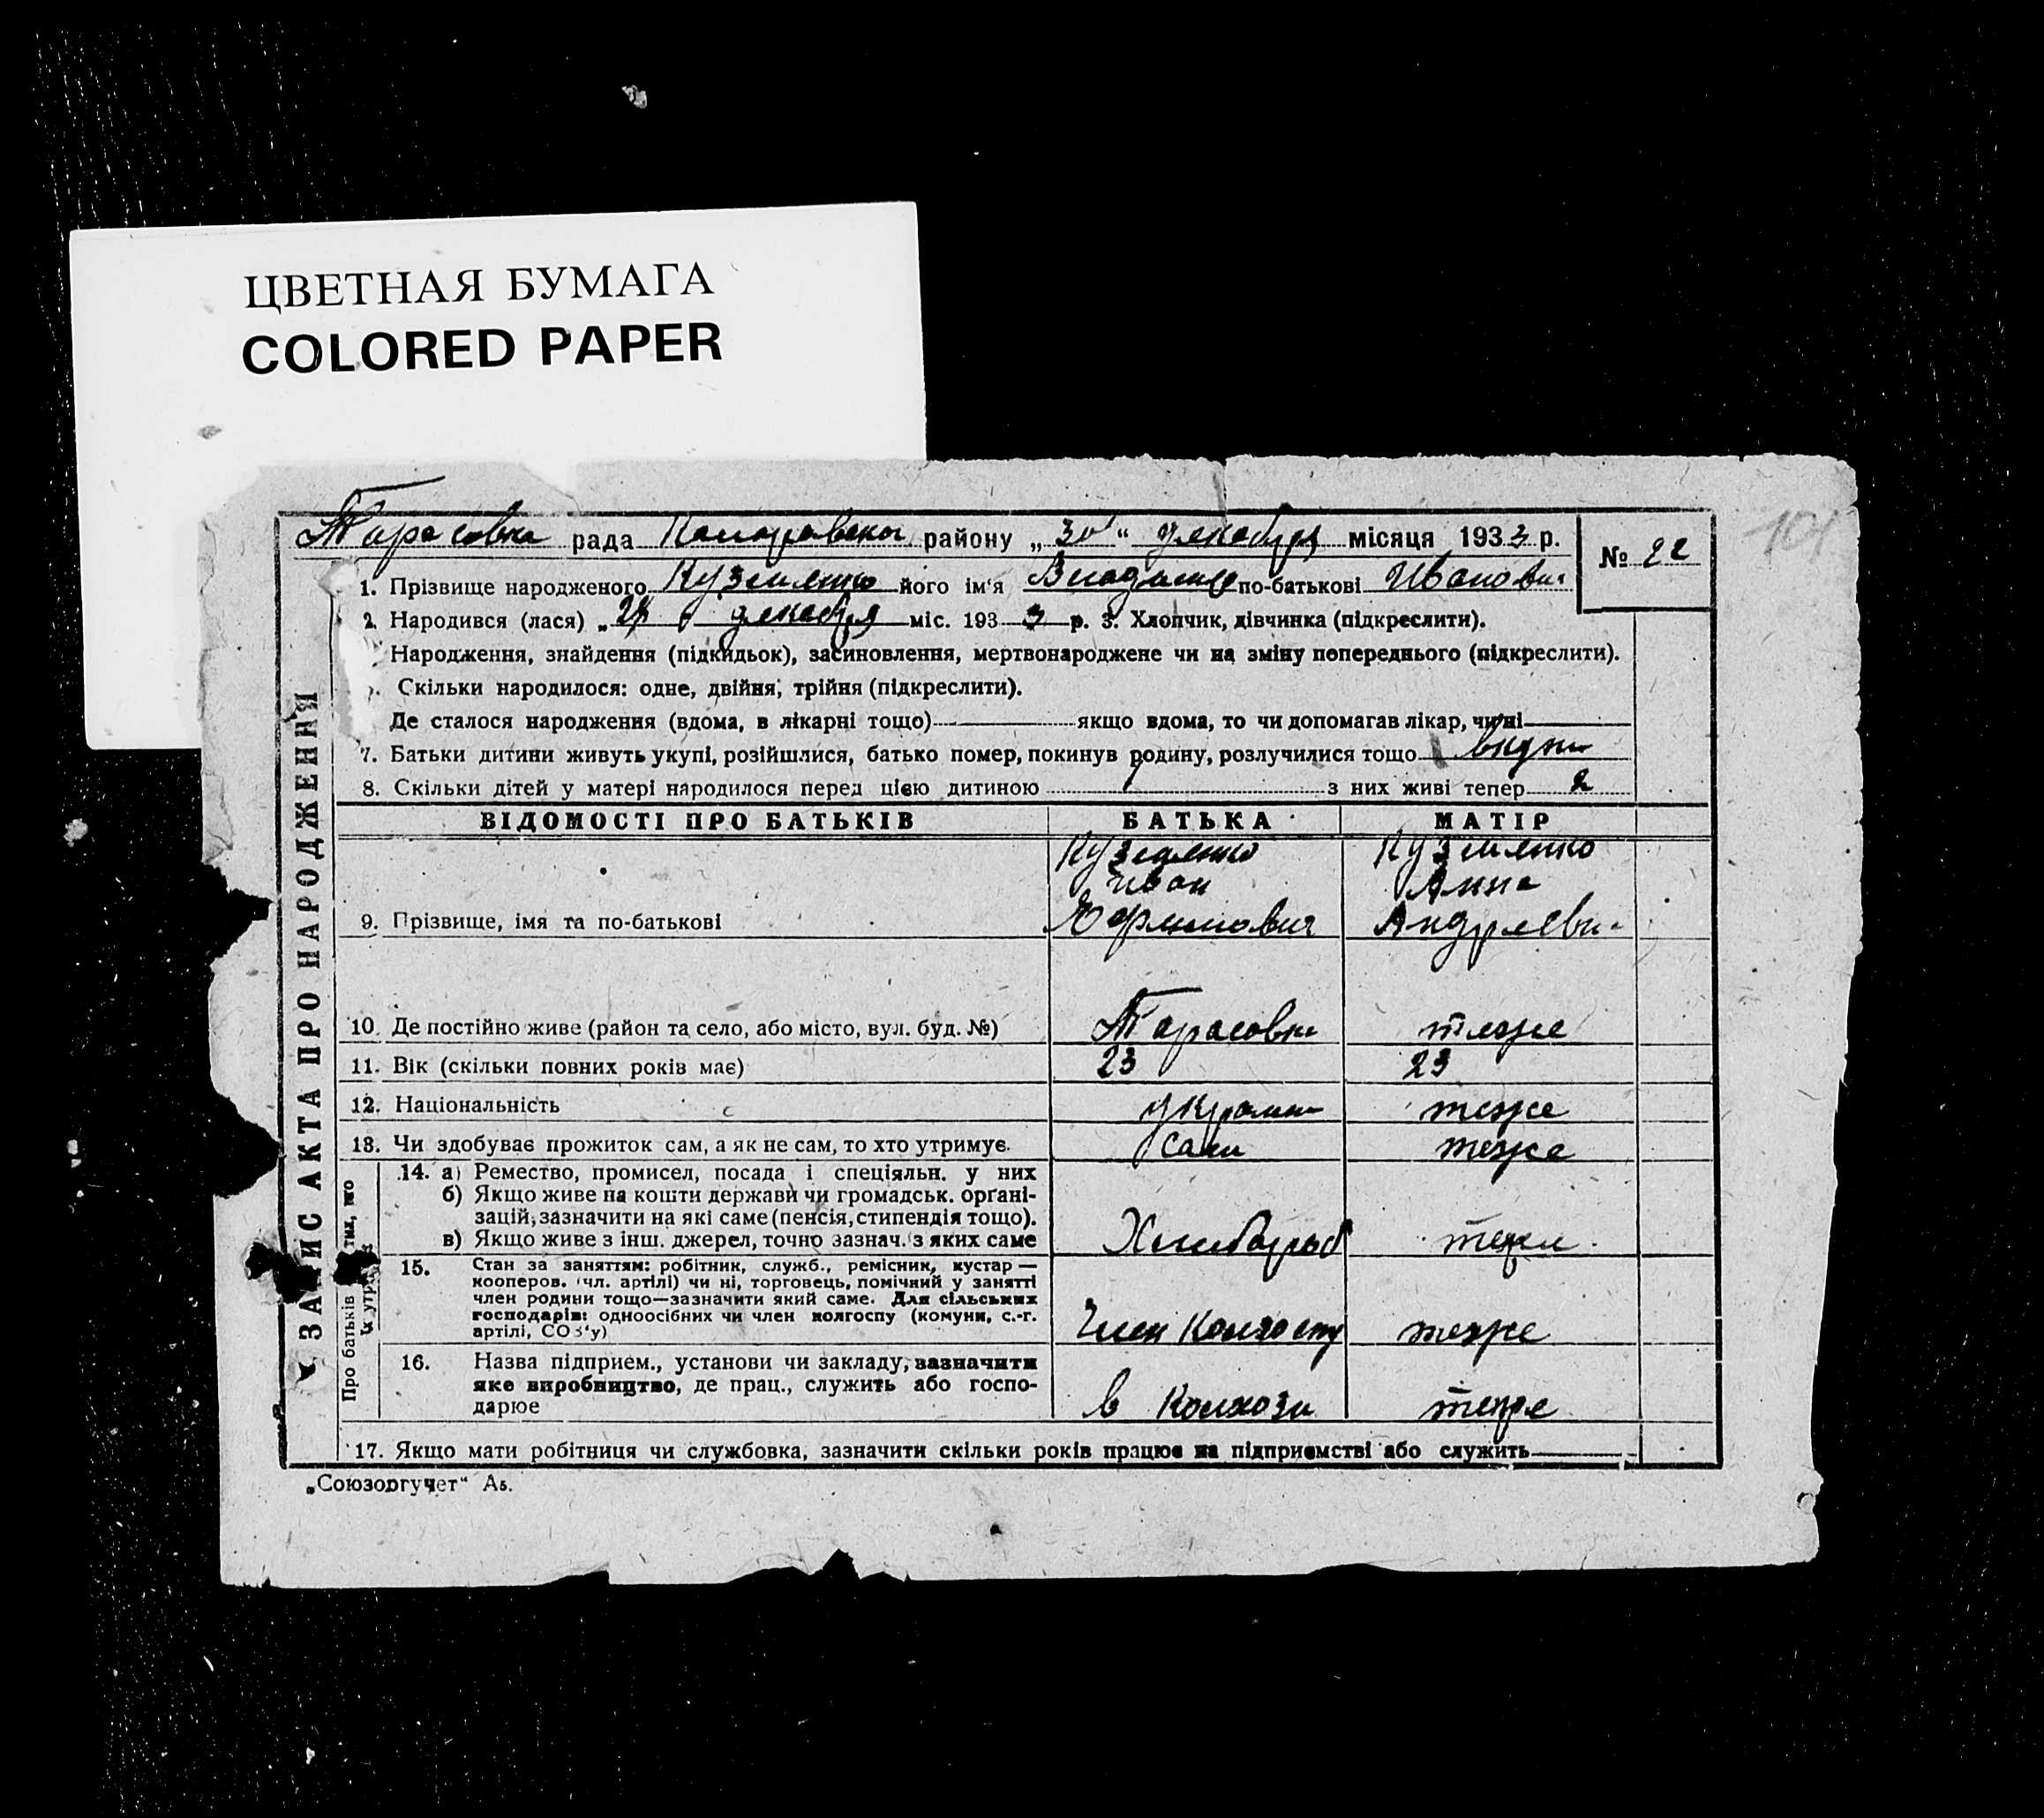 ЦВЕТНАЯ БУМАГА
COLORED PAPER
101
Тарасовка рада району „30“ декабря місяця 1933 р.
№ 22
1. Прізвище народженого Кузменко його ім‘я по-батькові Иванович
2. Народився (лася) „ декабря міс. 1933 р. 3. Хлопчик, дівчинка (підкреслити).
Народження, знайдення (підкидьок), засиновлення, мертвонароджене чи на зміну попереднього (підкреслити).
Скільки народилося: одне, двійня, трійня (підкреслити).
Де сталося народження (вдома, в лікарні тощо) якщо вдома, то чи допомагав лікар, чи ні
7. Батьки дитини живуть укупі, розійшлися, батько помер, покинув родину, розлучилися тощо
8. Скільки дітей у матері народилося перед цією дитиною з них живі тепер 2
ЗАПИС АКТА ПРО НАРОДЖЕННЯ
ВІДОМОСТІ ПРО БАТЬКІВ БАТЬКА МАТІР
Кузменко Кузменко
Иван Анна
9. Прізвище, імя та по-батькові Ефимович
10. Де постійно живе (район та село, або місто, вул. буд. №) Тарасовка тоже
11. Вік (скільки повних років має) 23 23
12. Національність тоже
13. Чи здобуває прожиток сам, а як не сам, то хто утримує. сами тоже
Про батьків
14. а) Ремество, промисел, посада і спеціяльн. у них
б) Якщо живе на кошти держави чи громадськ. органі-
зацій, зазначити на які саме (пенсія, стипендія тощо).
в) Якщо живе з інш. джерел, точно зазнач. з яких саме Хлебороб тоже
15. Стан за заняттям: робітник, служб., ремісник, кустар —
кооперов. (чл. артілі) чи ні, торговець, помічний у занятті
член родини тощо—зазначити який саме. Для сільських
господарів: одноосібних чи член колгоспу (комуни, с.-г.
артілі, СОЗ‘у) член колхозу тоже
16. Назва підприєм., установи чи закладу, зазначити
яке виробництво, де прац., служить або госпо-
дарює в колхози тоже
17. Якщо мати робітниця чи службовка, зазначити скільки років працює на підприємстві або служить
„Союзоргучет“ А5.